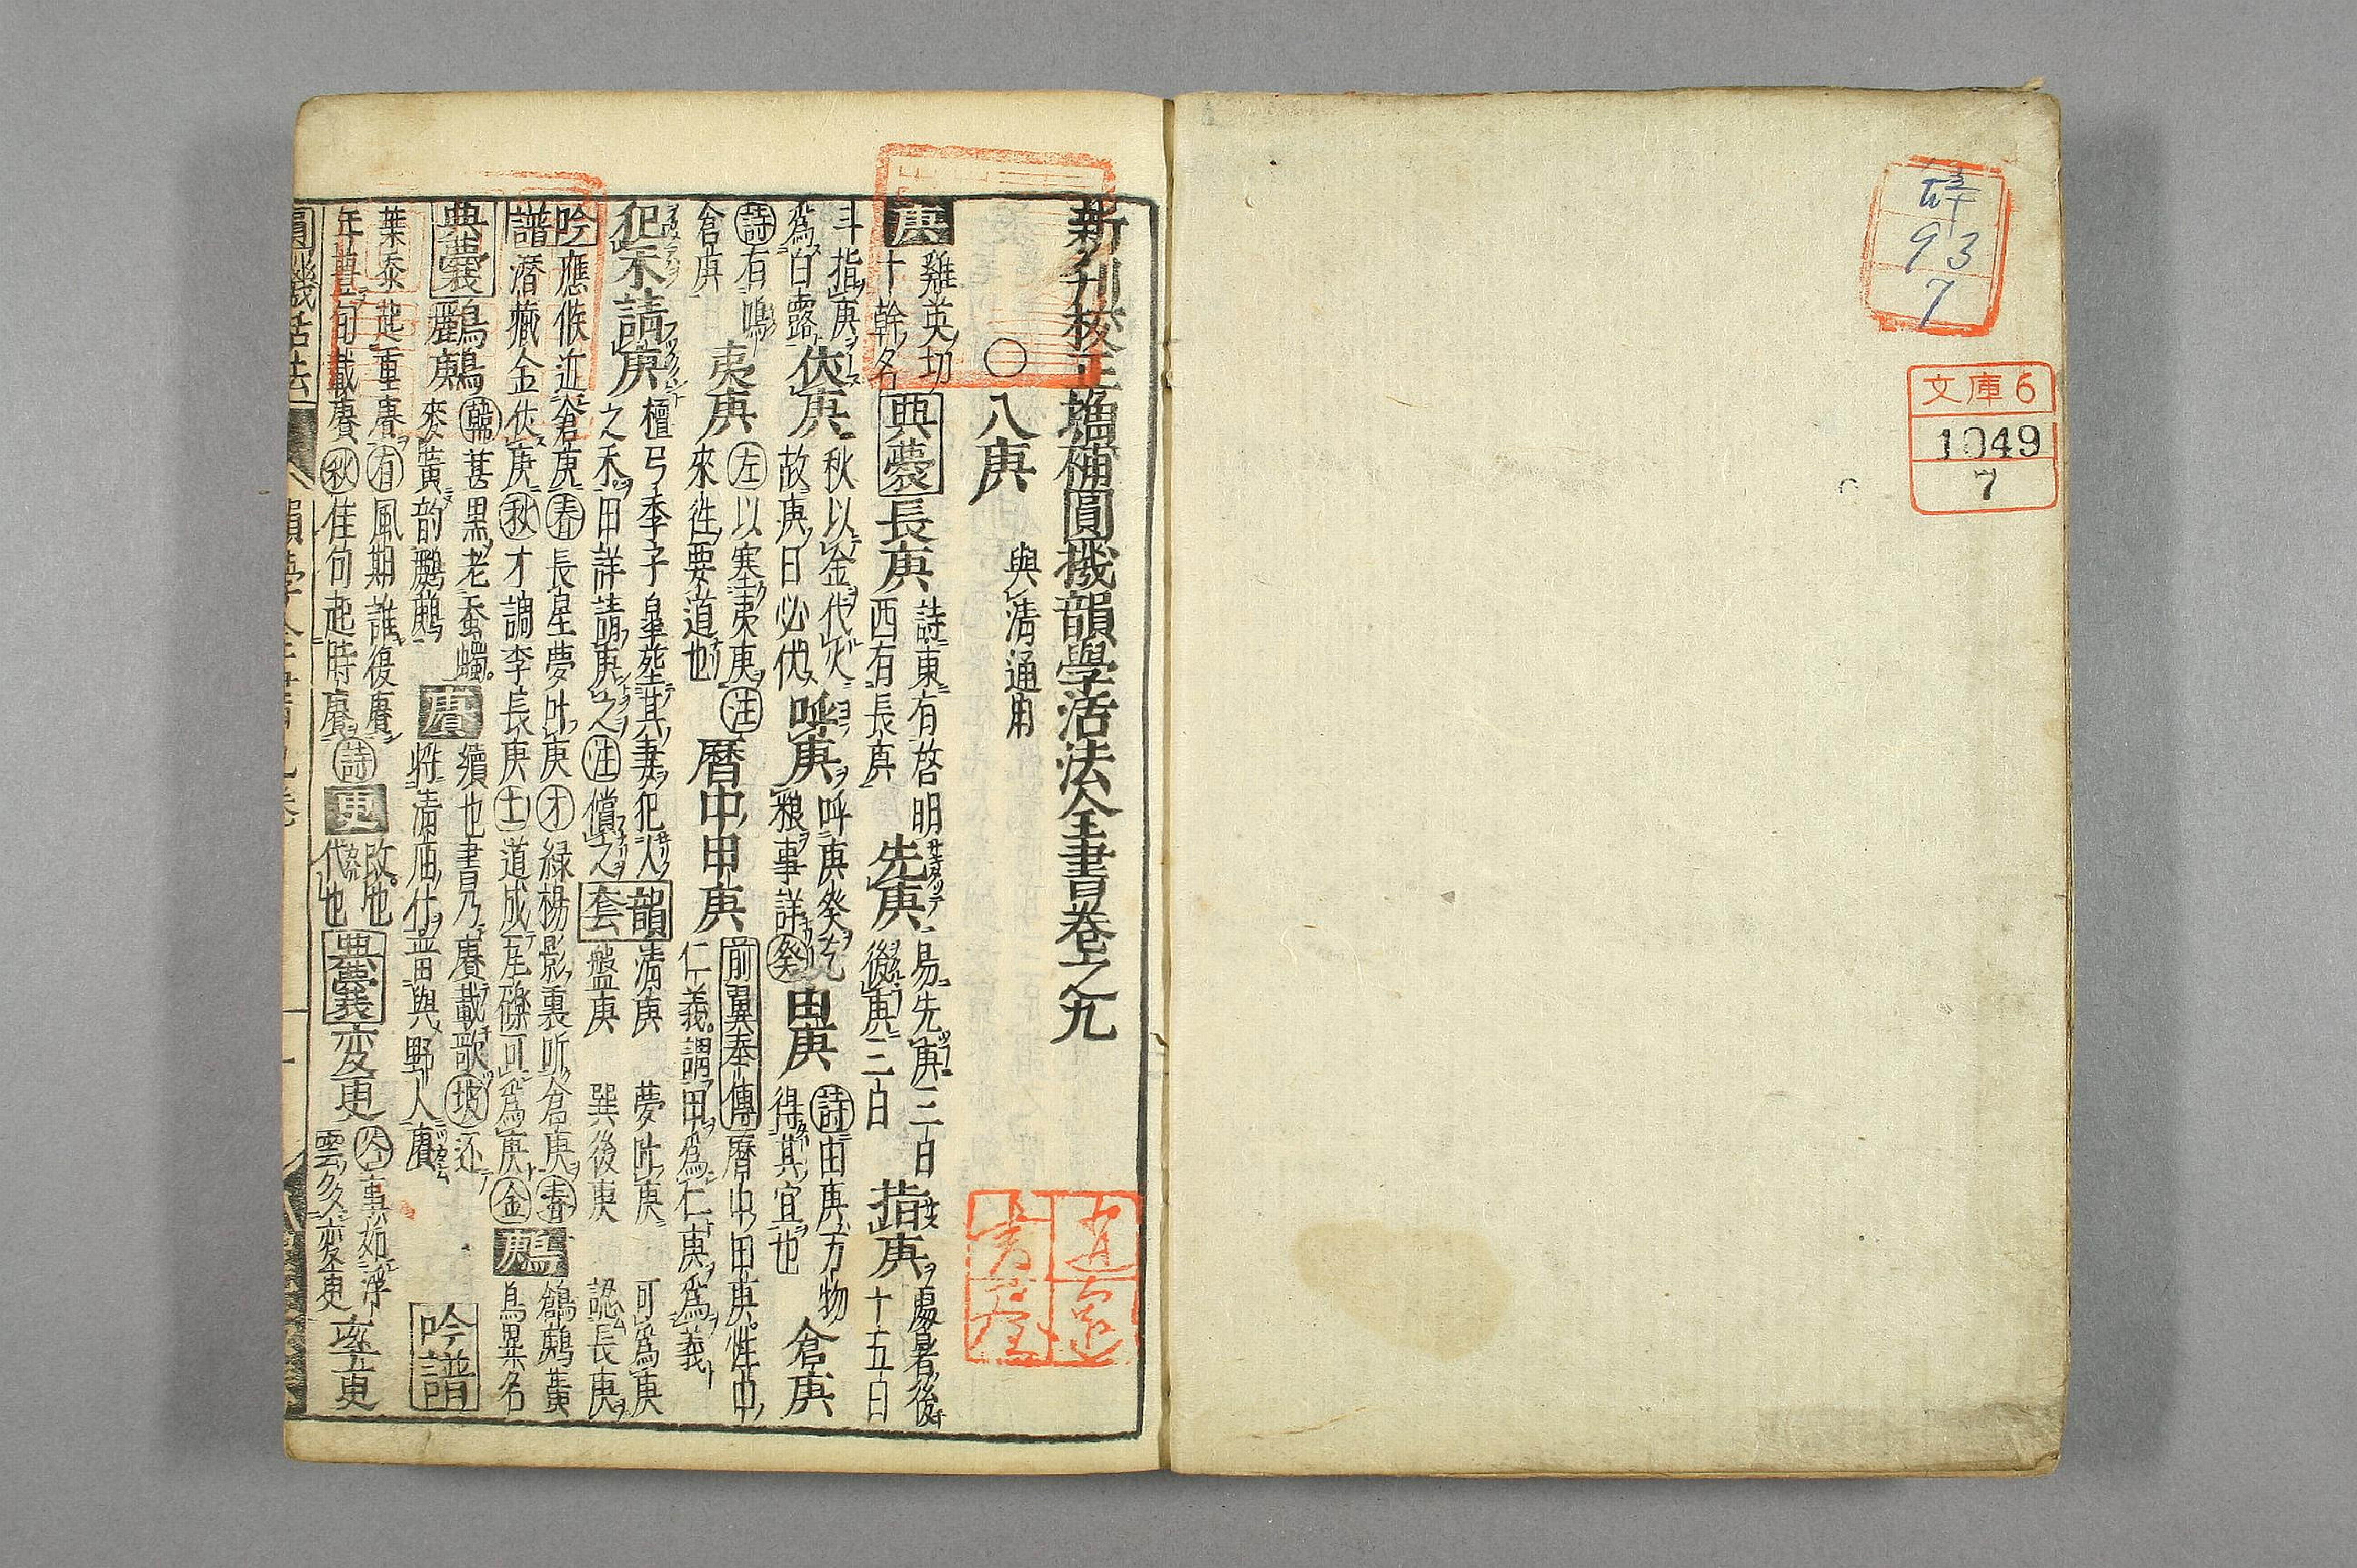 辞
93
7
文庫6
1049
7
新刊校正增補圓機韻學活法全書卷之九
〇八庚 與清通用
庚 雞英切 十幹名 典籑 長庚 詩東有啓明 西有長庚 先庚 易先庚三日 後庚三日 指庚 處暑後 十五日
斗指庚 爲白露 伏庚 秋以金代火 故庚日必伏 呼庚 呼庚癸乞 粮事詳癸 由庚 詩由庚万物 得其宜也 倉庚
詩有鳴 倉庚 夷庚 左以塞夷庚注 來徃要道也 暦中甲庚 前翼奉傳暦中甲庚性
仁義謂甲爲仁庚爲義
犯禾請庚 檀弓季子皐塟其妻犯人 之禾申詳請庚之注償之 韻套 清庚 夢叶庚 可爲庚 盤庚 巽後庚 認長庚
吟譜 應候近倉庚春 長星夢叶庚才 緑楊影裏听倉庚春 潛藏金伏庚秋 才調李長庚士 道成丘礫可爲庚金 鶊 鶬鶊黄 鳥異名
鸝鶊 韩甚黒老蚕蠋 麥黄韵鸝鶊 賡 續也書乃賡載歌坡还 將清庙什並與野人賡 吟譜
葉泰起重賡有 風期誰復賡 年豊句載賡秋 佳句起時賡詩 更 改也 代也 変更 事如浮 雲多変更
圓機活法